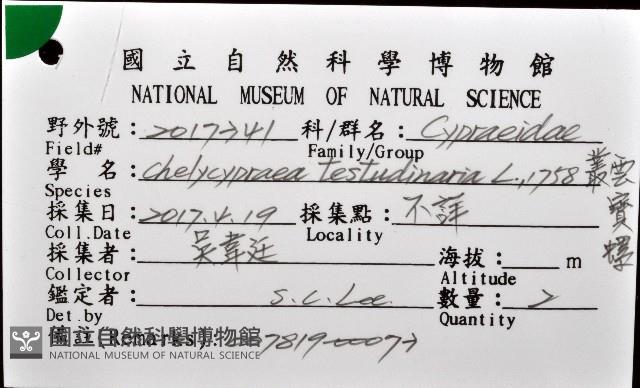 國立自然科學博物館
NATIONAL MUSEUM OF NATURAL SCIENCE
野外號： 科/群名：Cypraeidae
Field# Family/Group
學 名：Chelycypraea testudinaria L., 1758 叢雲寶螺
Species
採集日：2017.4.19 採集點：不詳
Coll.Date Locality
採集者：吳韋廷 海拔：m
Collector Altitude
鑑定者：S.C. Lee 數量：2
Det.by Quantity
(Remarks)
國立自然科學博物館
NATIONAL MUSEUM OF NATURAL SCIENCE